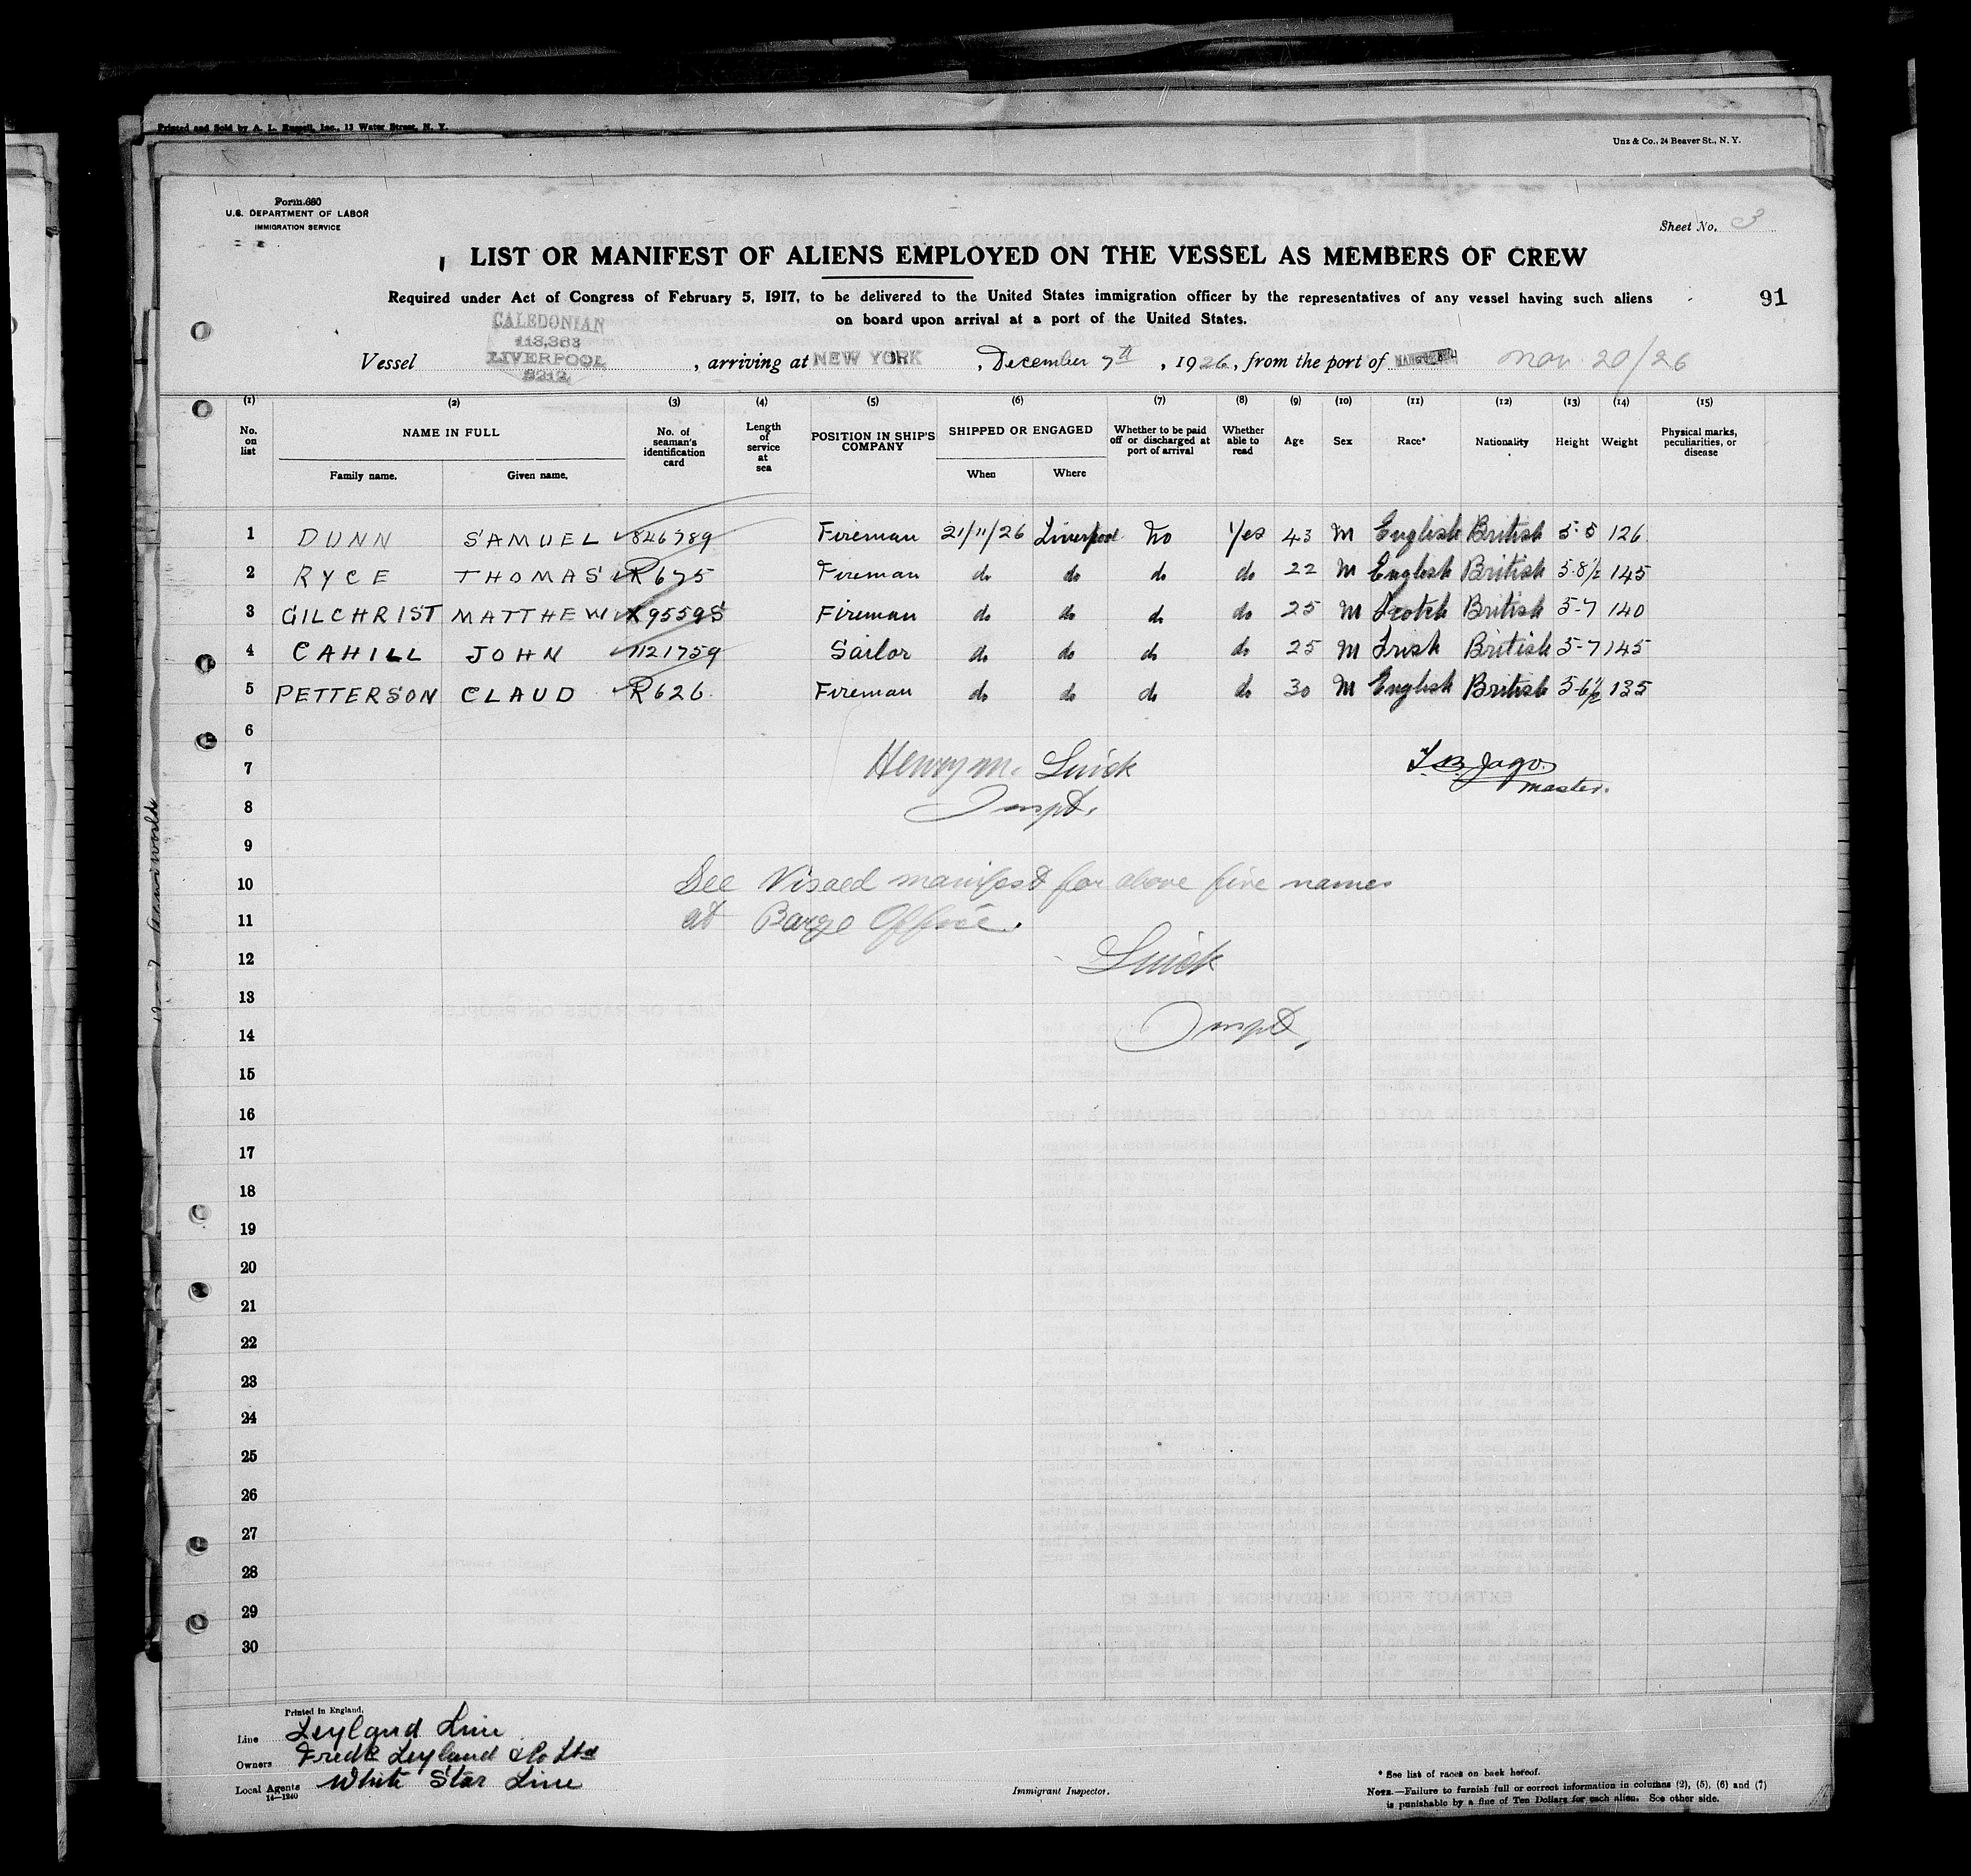 Printed and Sold by A. L. Russell, Inc., 13 Water Street, N. Y.
Unz & Co., 24 Beaver St., N. Y.
Form 680
U.S. DEPARTMENT OF LABOR
IMMIGRATION SERVICE
Sheet No. 3
LIST OR MANIFEST OF ALIENS EMPLOYED ON THE VESSEL AS MEMBERS OF CREW
Required under Act of Congress of February 5, 1917, to be delivered to the United States immigration officer by the representatives of any vessel having such aliens
on board upon arrival at a port of the United States.
91
CALEDONIAN
113,363
LIVERPOOL
8212
Vessel , arriving at NEW YORK , December 7th , 1926, from the port of Nov. 20/26
(1) (2) (3) (4) (5) (6) (7) (8) (9) (10) (11) (12) (13) (14) (15)
No. on list NAME IN FULL Family name. Given name. No. of seaman's identification card Length of service at sea POSITION IN SHIP'S COMPANY SHIPPED OR ENGAGED When Where Whether to be paid off or discharged at port of arrival Whether able to read Age Sex Race* Nationality Height Weight Physical marks, peculiarities, or disease
1 DUNN SAMUEL 846789 Fireman 21/11/26 Liverpool No Yes 43 M English British 5-5 126
2 RYCE THOMAS R675 Fireman do do do do 22 M English British 5-8½ 145
3 GILCHRIST MATTHEW X95595 Fireman do do do do 25 M Scotch British 5-7 140
4 CAHILL JOHN 1121759 Sailor do do do do 25 M Irish British 5-7 145
5 PETTERSON CLAUD R626 Fireman do do do do 30 M English British 5-6½ 135
6
7 Henry M. T.B. Jago
Master.
8 Inspt.
9
10 See Visaed manifest for above five names
11 at Barge Office.
12
13
14 Inspt.
15
16
17
18
19
20
21
22
23
24
25
26
27
28
29
30
Printed in England.
Line Leyland Line
Owners Fredk Leyland & Co Ltd
Local Agents White Star Line
14—1240
Immigrant Inspector.
* See list of races on back hereof.
NOTE.—Failure to furnish full or correct information in columns (2), (5), (6) and (7)
is punishable by a fine of Ten Dollars for each alien. See other side.